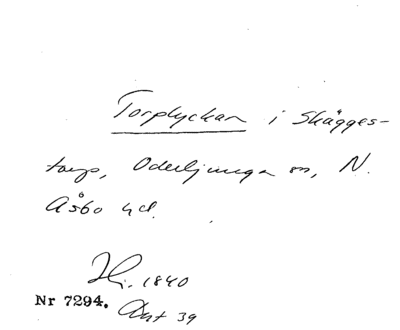 Torplyckan i Skägges-
torp, Oderljunga sn, N.
Åsbo hd.
Hi. 1840
Nr 7294. Akt 39